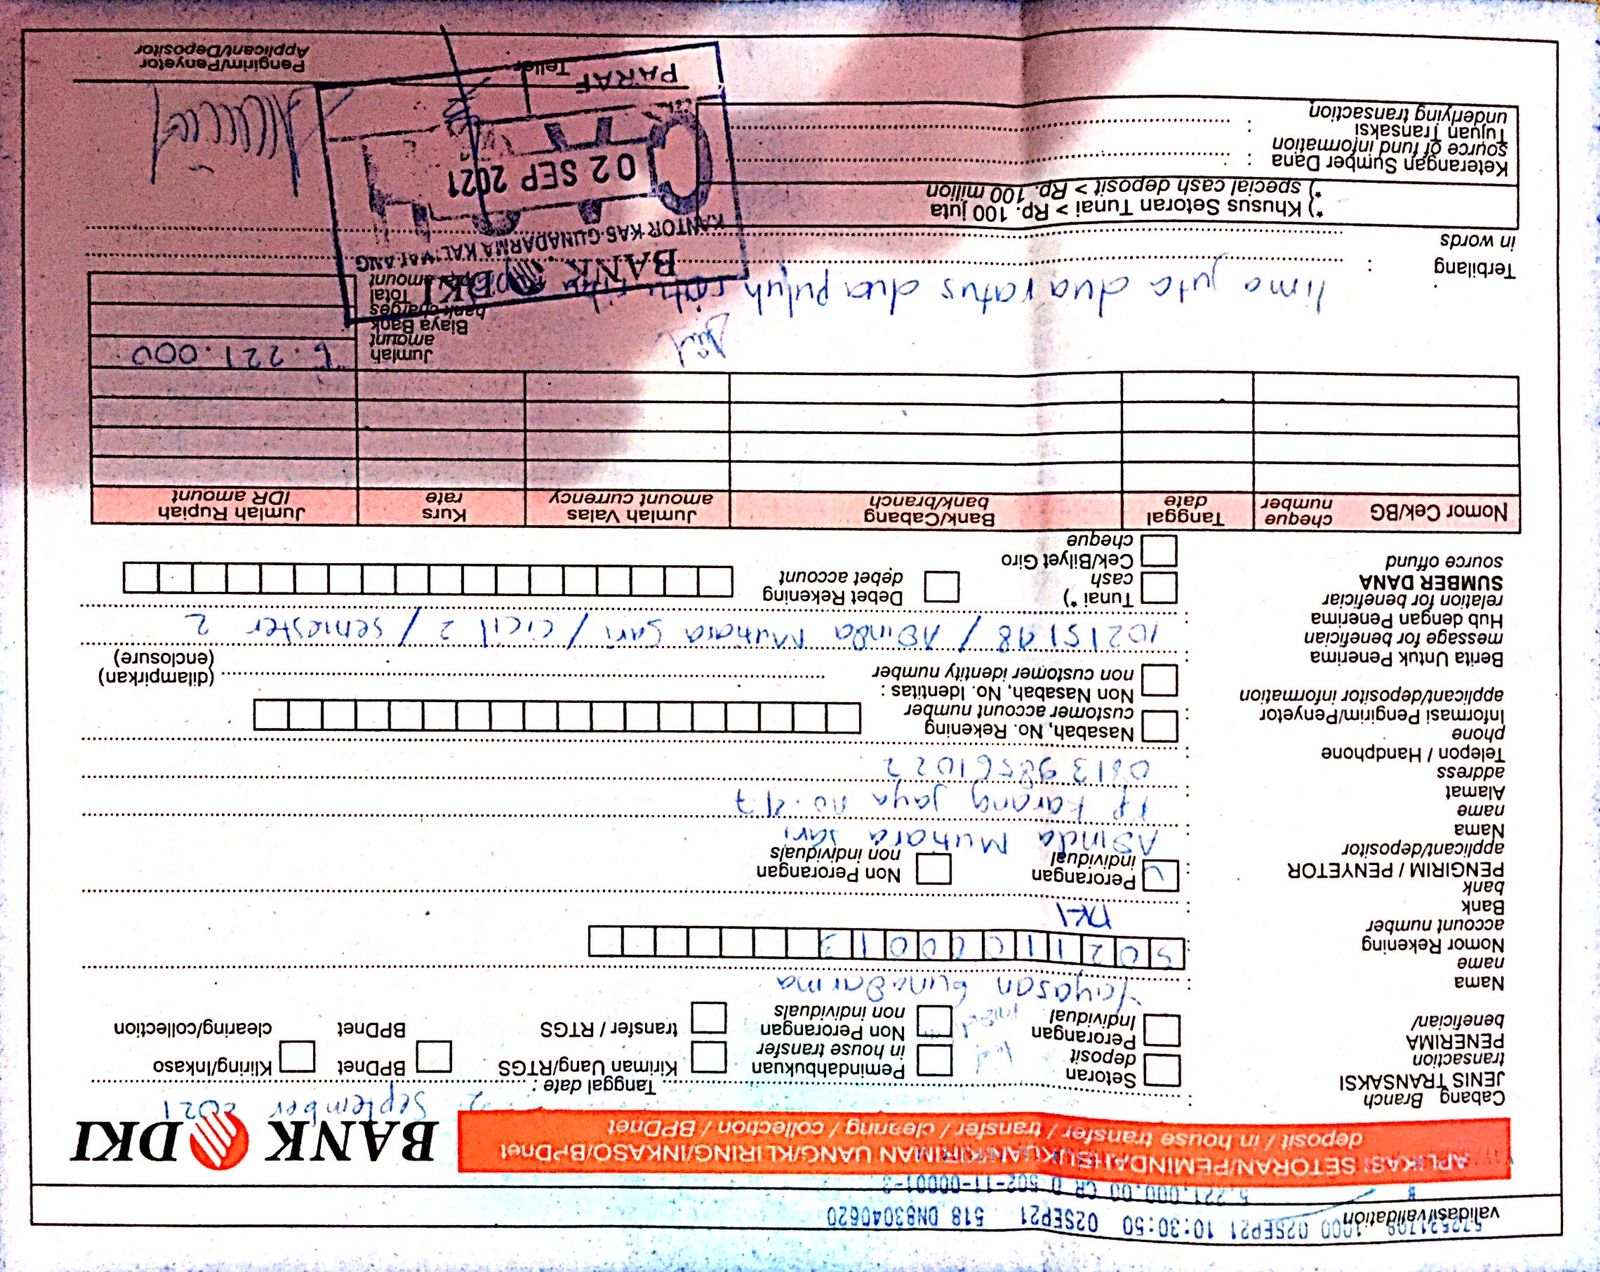 validasi/validation
572531708 1000 02SEP21 10:30:50 02SEP21 518 DN83040620
5.221.000.00 CR D 502-11-00001-3
APLIKASI SETORAN/PEMINDAHBUKUAN/KIRIMAN UANG/KLIRING/INKASO/BPDnet
deposit / in house transfer / transfer / clearing / collection / BPDnet
BANK DKI
Cabang Branch
Tanggal date : 2 September 2021
JENIS TRANSAKSI
transaction
Setoran
deposit
Pemindahbukuan
in house transfer
Kiriman Uang/RTGS
transfer / RTGS
BPDnet
BPDnet
Kliring/Inkaso
clearing/collection
PENERIMA
benefician/
Perorangan
Individual
Non Perorangan
non individuals
Nama
name
: Yayasan Gunadarma
Nomor Rekening
account number
5 0 2 1 1 0 0 0 0 1 3
Bank
bank
: DKI
PENGIRIGIM / PENYETOR
applicant/depositor
Perorangan
individual
Non Perorangan
non individuals
Nama
name
: Adinda Muhara Sari
Alamat
address
: kp karang jaya no. 217
Telepon / Handphone
phone
: 081398561022
Informasi Pengirim/Penyetor
applicant/depositor information
Nasabah, No. Rekening
customer account number
Non Nasabah, No. Identitas :
non customer identity number
(dilampirkan)
(enclosure)
Berita Untuk Penerima
message for benefician
Hub dengan Penerima
relation for beneficiar
: 10215198 / Adinda Muhara Sari / cicil 2 / semester 2
SUMBER DANA
source offund
Tunai *)
cash
Debet Rekening
debet account
Cek/Bilyet Giro
cheque
Nomor Cek/BG cheque number
Tanggal
date
Bank/Cabang
bank/branch
Jumlah Valas
amount currency
Kurs
rate
Jumlah Rupiah
IDR amount
Jumlah
amount
5.221.000
Biaya Bank
bank charges
Total
amount
Terbilang
in words
: lima juta dua ratus dua puluh satu ribu
*) Khusus Setoran Tunai > Rp. 100 juta
*) special cash deposit > Rp. 100 milion
Keterangan Sumber Dana
source of fund information
:
Tujuan Transaksi
underlying transaction
:
BANK DKI
KANTOR KAS GUNADARMA KALIMALANG
02 SEP 2021
PARAF
Teller
Pengirim/Penyetor
Applicant/Depositor